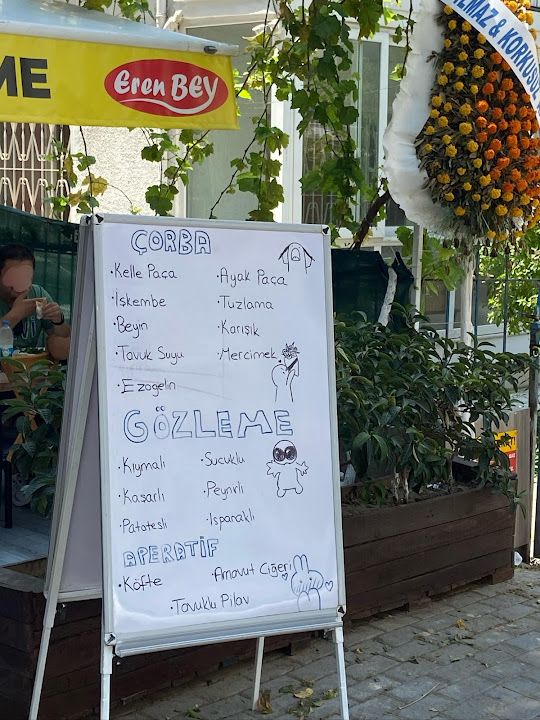 ME
Eren BEY
MAZ & KORKUSUZ
ÇORBA
·Kelle Paça ·Ayak Paça
·İşkembe ·Tuzlama
·Beyin ·Karışık
·Tavuk Suyu ·Mercimek
·Ezogelin
GÖZLEME
·Kıymalı ·Sucuklu
·Kaşarlı ·Peynirli
·Patatesli ·Ispanaklı
APERATİF
·Köfte ·Arnavut Ciğeri
·Tavuklu Pilav